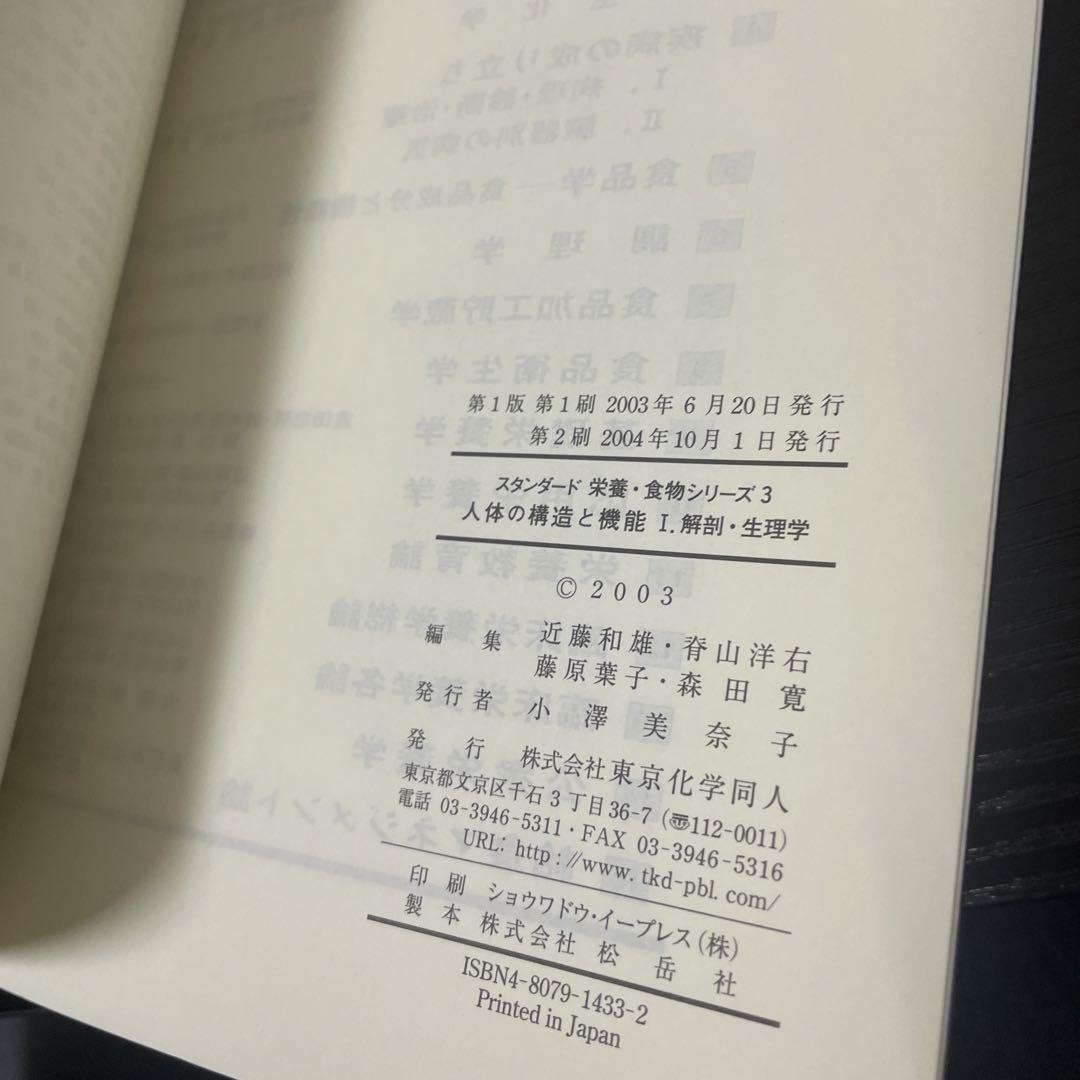 第1版 第1刷 2003年6月20日発行
第2刷 2004年10月1日発行
スタンダード 栄養・食物シリーズ3
人体の構造と機能 I. 解剖・生理学
© 2003
編集 近藤和雄・脊山洋右
藤原葉子・森田寛
発行者 小澤美奈子
発行 株式会社東京化学同人
東京都文京区千石3丁目36-7(〠112-0011)
電話 03-3946-5311・FAX 03-3946-5316
URL: http://www.tkd-pbl.com/
印刷 ショウワドウ・イープレス(株)
製本 株式会社 松岳社
ISBN4-8079-1433-2
Printed in Japan